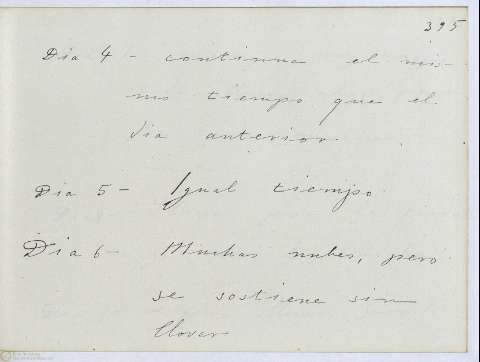 395
Dia 4 - continua el mis-
mo tiempo que el
dia anterior
Dia 5 - Igual tiempo
Dia 6 - Muchas nubes, pero
se sostiene sin
llover